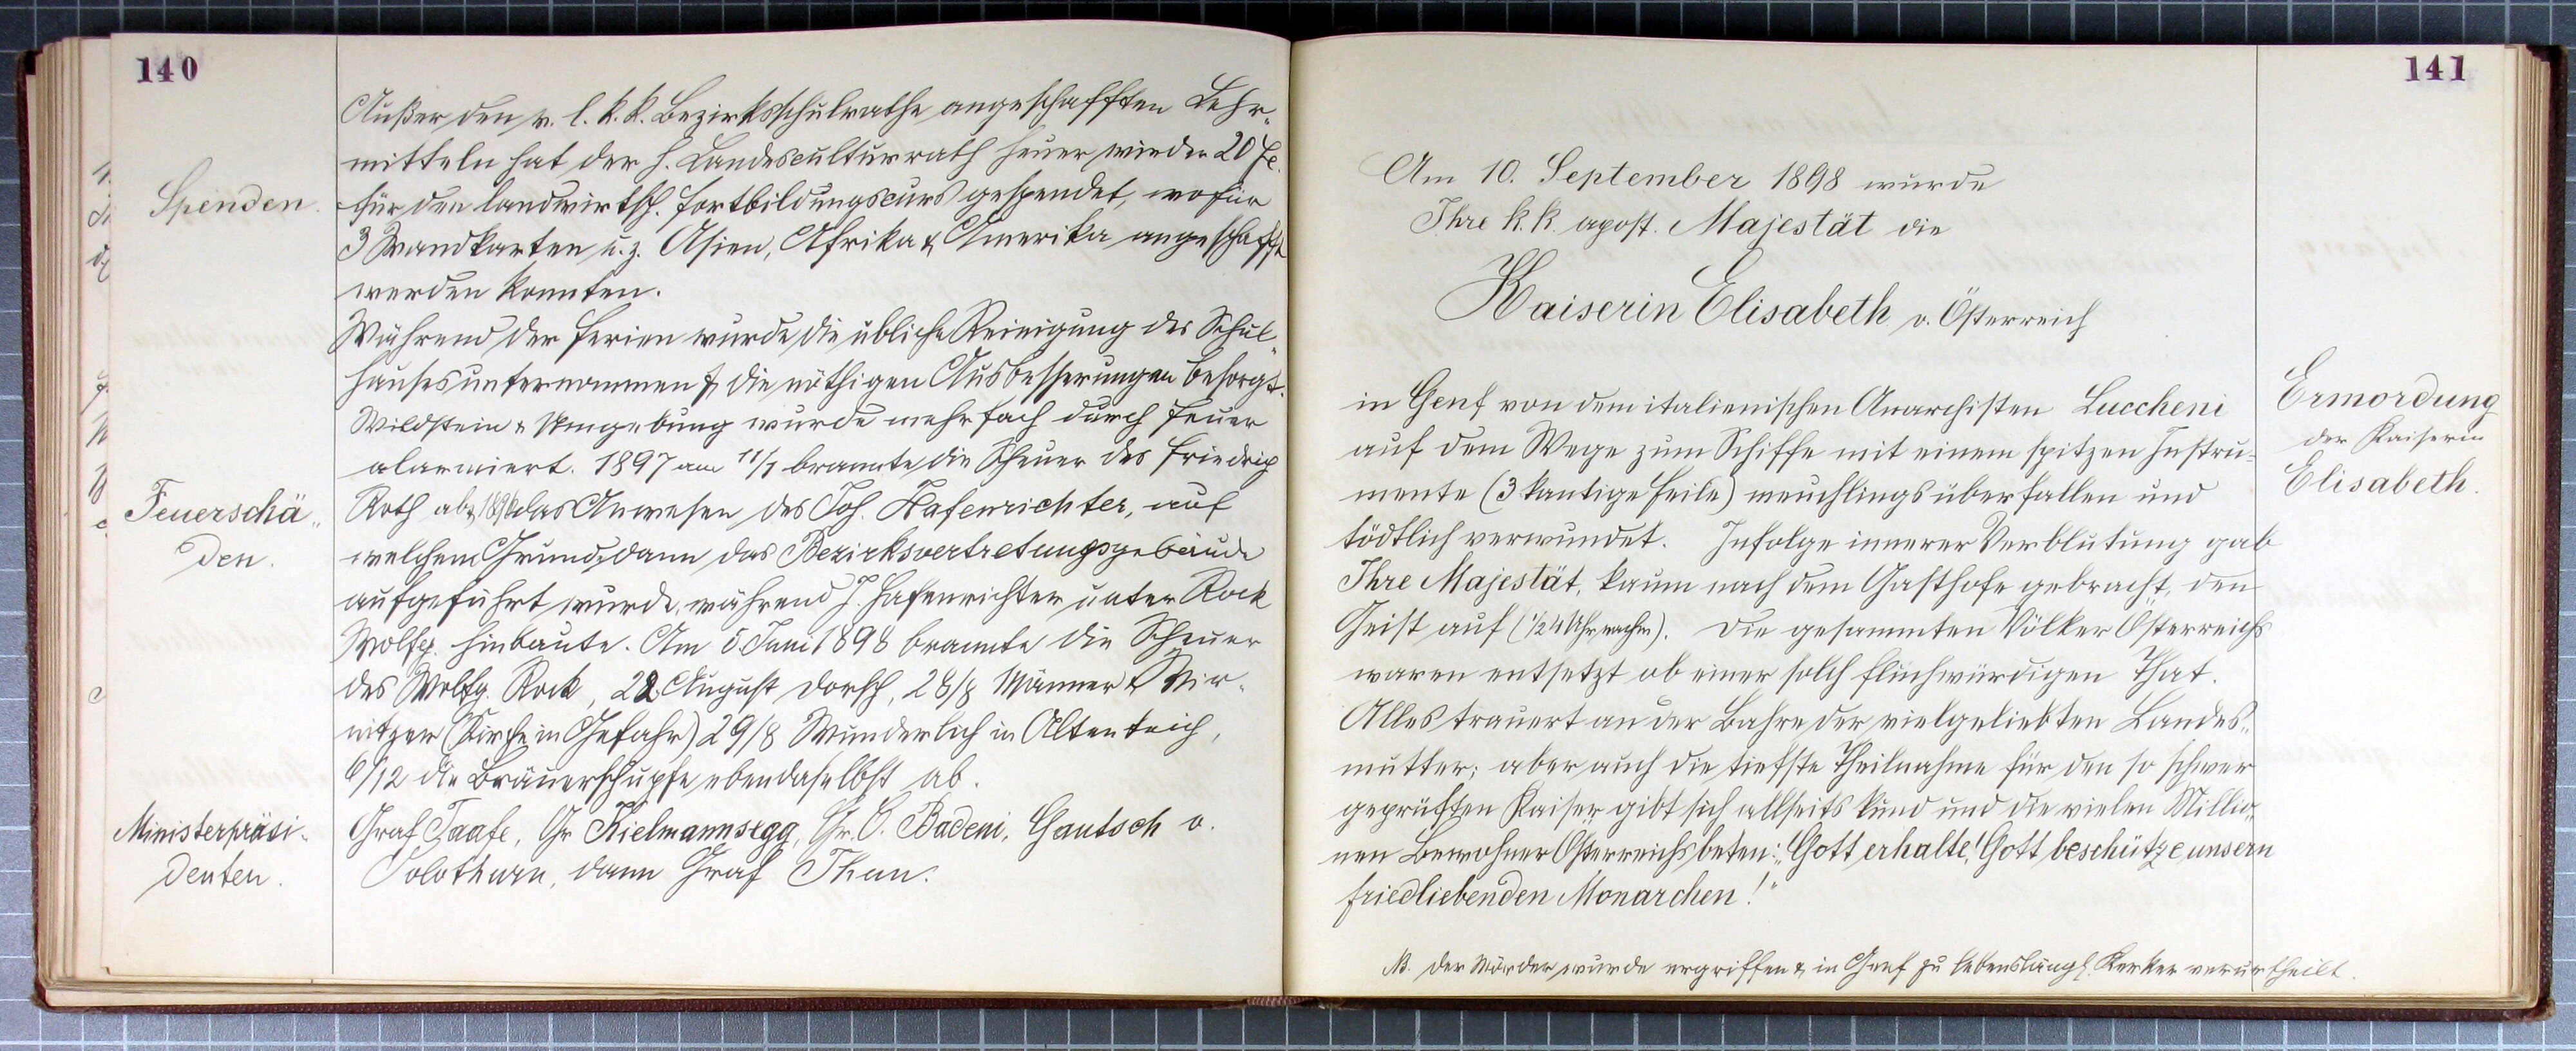 140
Außer den v. l. k. k. Bezirksschulrathe angeschafften Lehr-
mitteln hat der h. Landesculturrath heuer wieder 20 f.
Spenden.
für den landwirtsch. Fortbildungscurs gespendet, wofür
3 Wandkarten u. z. Asien, Afrika & Amerika angeschafft
werden konnten.
Während der Ferien wurde die übliche Reinigung des Schul-
hauses unternommen & die nöthigen Ausbesserungen besorgt.
Wildstein & Umgebung wurde mehrfach durch Feuer
alarmiert. 1897 am 11/7 brannte die Scheuer des Friedrich
Feuerschä-
den.
Roth ab, das Anwesen des Joh. Hafenrichter, auf
welchem Grunde dann das Bezirksvertretungsgebäude
aufgeführt wurde, während J. Hafenrichter unter Rock
Wolfg. hinbaute. Am 5. Juni 1898 brannte die Scheuer
des Wolfg. Rock, 22. August Dorsch, 28/8 Männer &
(Kirche in Gefahr) 29/8 Wunderlich in Altenteich,
6/12 die Bräuerschupfe ebendaselbst ab.
Ministerpräsi-
denten.
Graf Taafe, Gr Kielmannsegg, Gr. C. Badeni, Gautsch v.
Solothurn, dann Graf Thun.
141
Am 10. September 1898 wurde
Ihre k. k. apost. Majestät die
Kaiserin Elisabeth v. Österreich
Ermordung
der Kaiserin
Elisabeth.
in Genf von dem italienischen Anarchisten Luccheni
auf dem Wege zum Schiffe mit einem spitzen Instru-
mente (3 kantige Feile) meuchlings überfallen und
tödtlich verwundet. Infolge innerer Verblutung gab
Ihre Majestät, kaum nach dem Gasthofe gebracht, den
Geist auf (1/2 4 Uhr nachm). Die gesammten Völker Österreichs
waren entsetzt ob einer solch fluchwürdigen That.
Alles trauert an der Bahre der vielgeliebten Landes-
mutter; aber auch die tiefste Theilnahme für den so schwer
geprüften Kaiser gibt sich allseits kund und die vielen Millio-
nen Bewohner Österreichs beten: „Gott erhalte! Gott beschütze unsern
friedliebenden Monarchen!"
NB. Der Mörder wurde ergriffen & in Genf zu lebenslängl. Kerker verurtheilt.